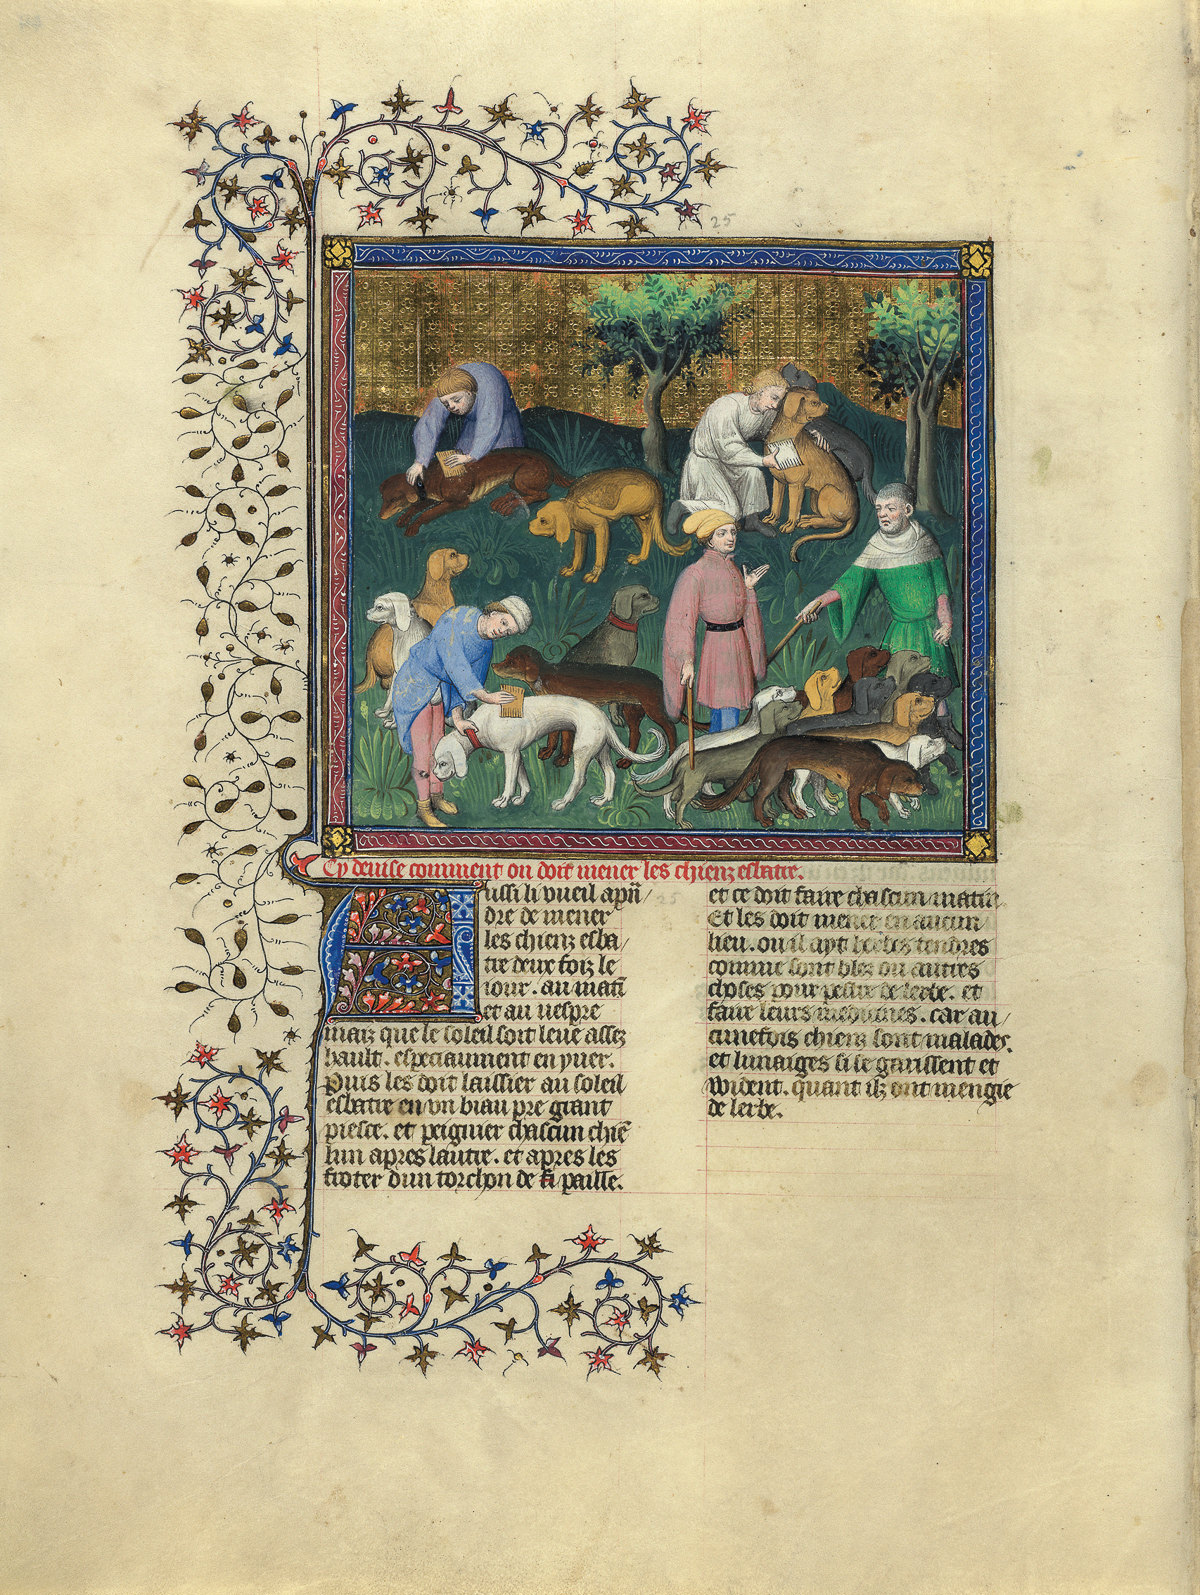 25
Cy deuise comment on doit mener les chienz esbatre.
Aussi li vueil apñ
dre de mener
les chienz esba
tre deux foiz le
iour. au mati
et au uespre
maiz que le soleil soit leue assez
hault. especiaument en yuer.
Puis les doit laissier au soleil
esbatre en vn biau pre grant
piesce. et peignier chascun chiẽ
lun apres lautre. et apres les
froter dun torchon de paille.
et ce doit faire chascun matin
Et les doit mener en aucun
lieu. ou il ayt herbes tendres
comme sont blez ou autres
choses pour pestre de lerbe. et
faire leurs medicines. car au
cunefois chienz sont malades.
et lunaiges si se garissent et
wident. quant ilz ont mengie
de lerbe.